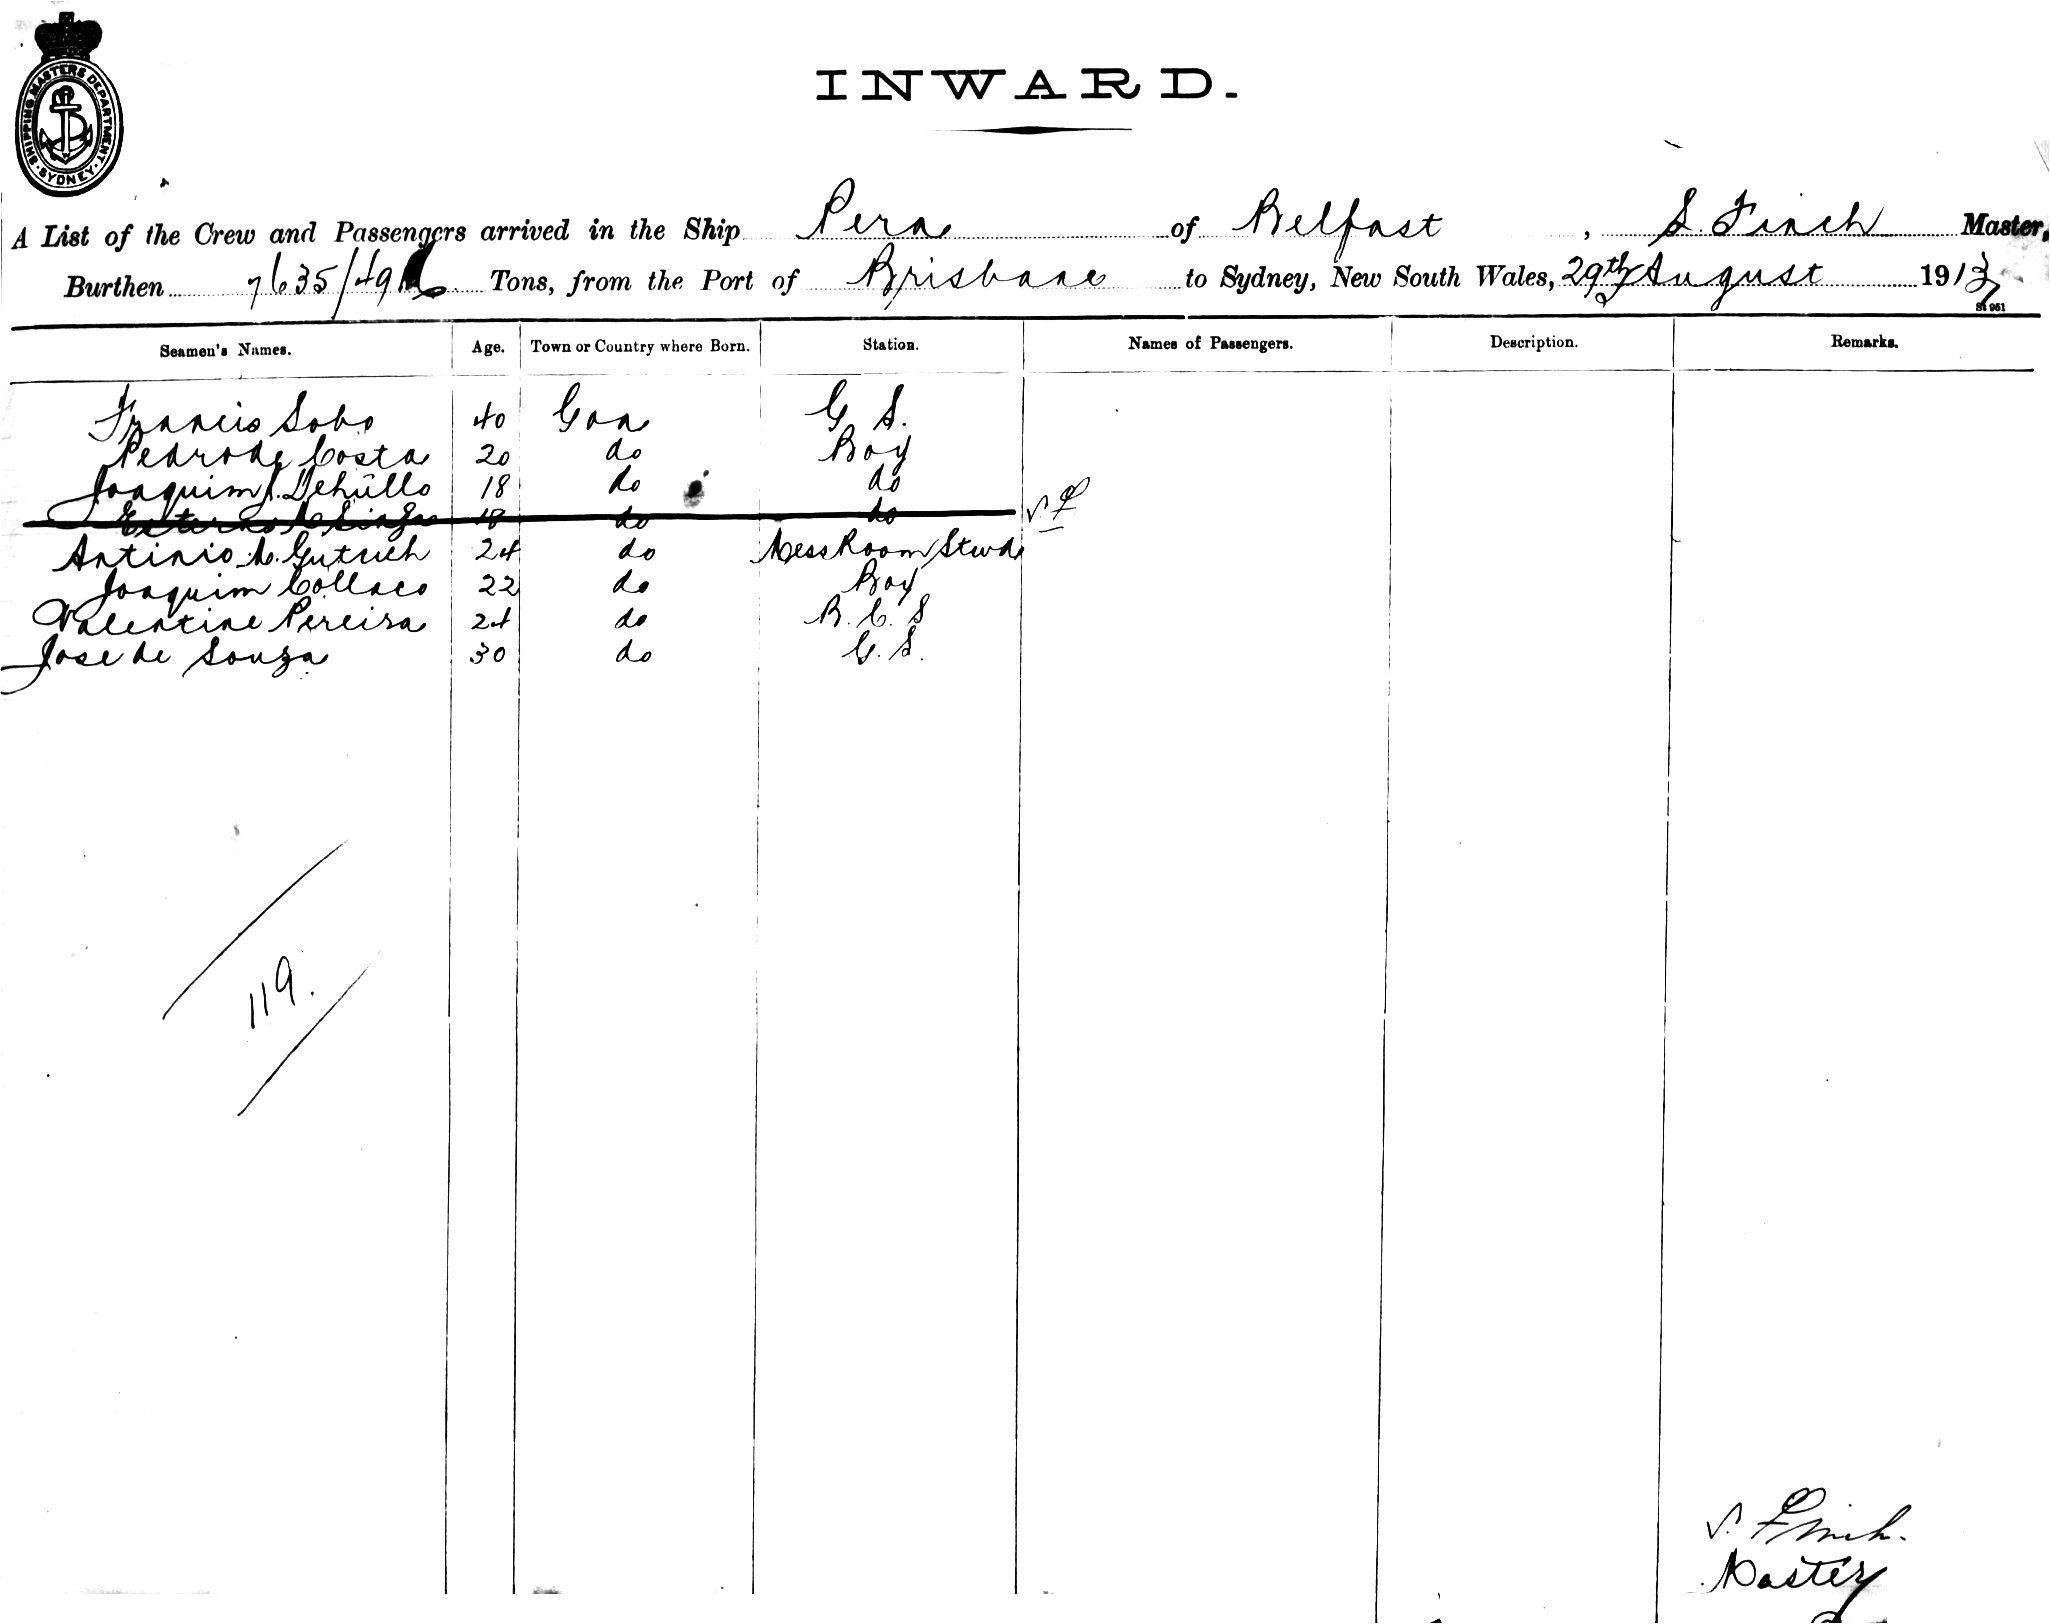 SHIPPING MASTERS DEPARTMENT. SYDNEY.
INWARD.
A List of the Crew and Passengers arrived in the Ship Pera of Belfast, S. Finch Master,
Burthen 7635/ Tons, from the Port of Brisbane to Sydney, New South Wales, 29th August 1913
St 951
Seamen's Names. Age. Town or Country where Born. Station. Names of Passengers. Description. Remarks.
Francis Sobo 40 Goa G S.
Pedro de Costa 20 do Boy
Joaquim 18 do do
18 do do S. F
Antinio 24 do Mess Room Stwd
Joaquim Collaco 22 do Boy
Valentine Pereira 24 do B. C. S
Jose de Souza 30 do G. S.
119.
S. Finch.
Master